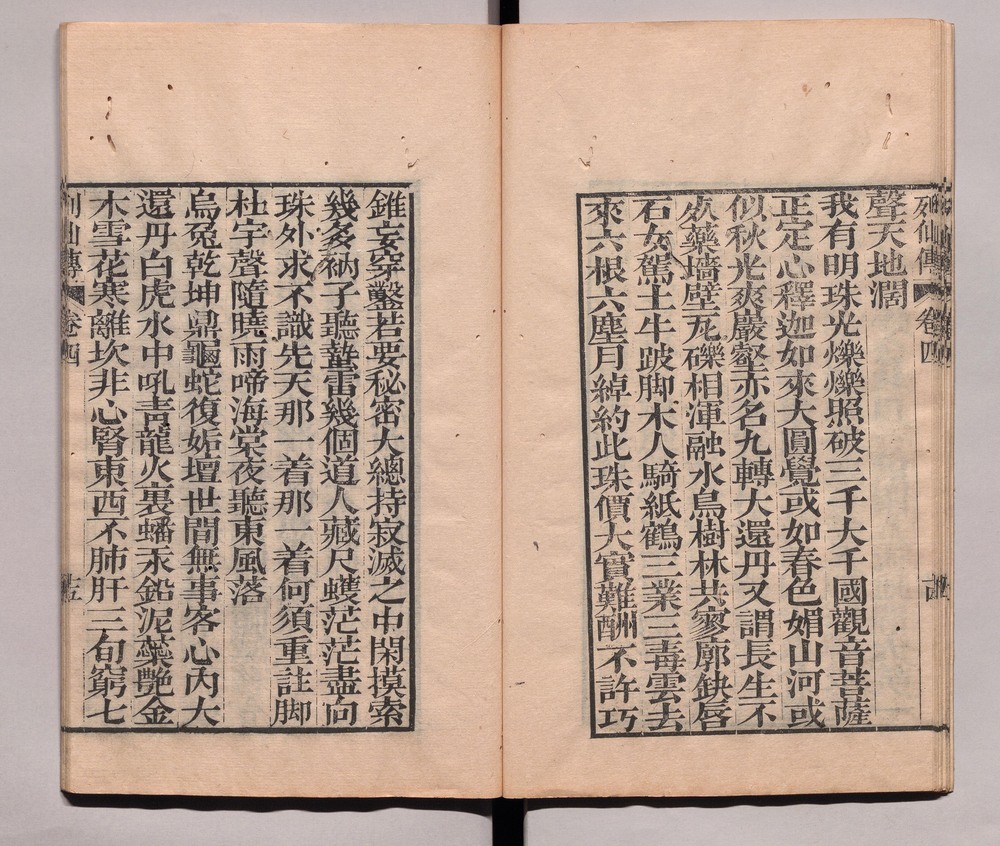 列仙傳 卷四
聲天地濶
我有明珠光爍爍照破三千大千國觀音菩薩
正定心釋迦如來大圓覺或如春色媚山河或
似秋光爽巖壑亦名九轉大還丹又謂長生不
死藥墻壁瓦礫相渾融水鳥樹林共寥廓缺唇
石女駕土牛跛脚木人騎紙鶴三業三毒雲去
來六根六塵月綽約此珠價大實難酬不許巧
錐妄穿鑿若要秘密大總持寂滅之中閑摸索
幾多衲子聽蟄雷幾個道人藏尺蠖茫茫盡向
珠外求不識先天那一着那一着何須重註脚
杜宇聲隨曉雨啼海棠夜聽東風落
烏兔乾坤鼎龜蛇復姤壇世間無事客心內大
還丹白虎水中吼青龍火裏蟠汞鉛泥蘂艷金
木雪花寒離坎非心腎東西不肺肝三旬窮七
列仙傳 卷四